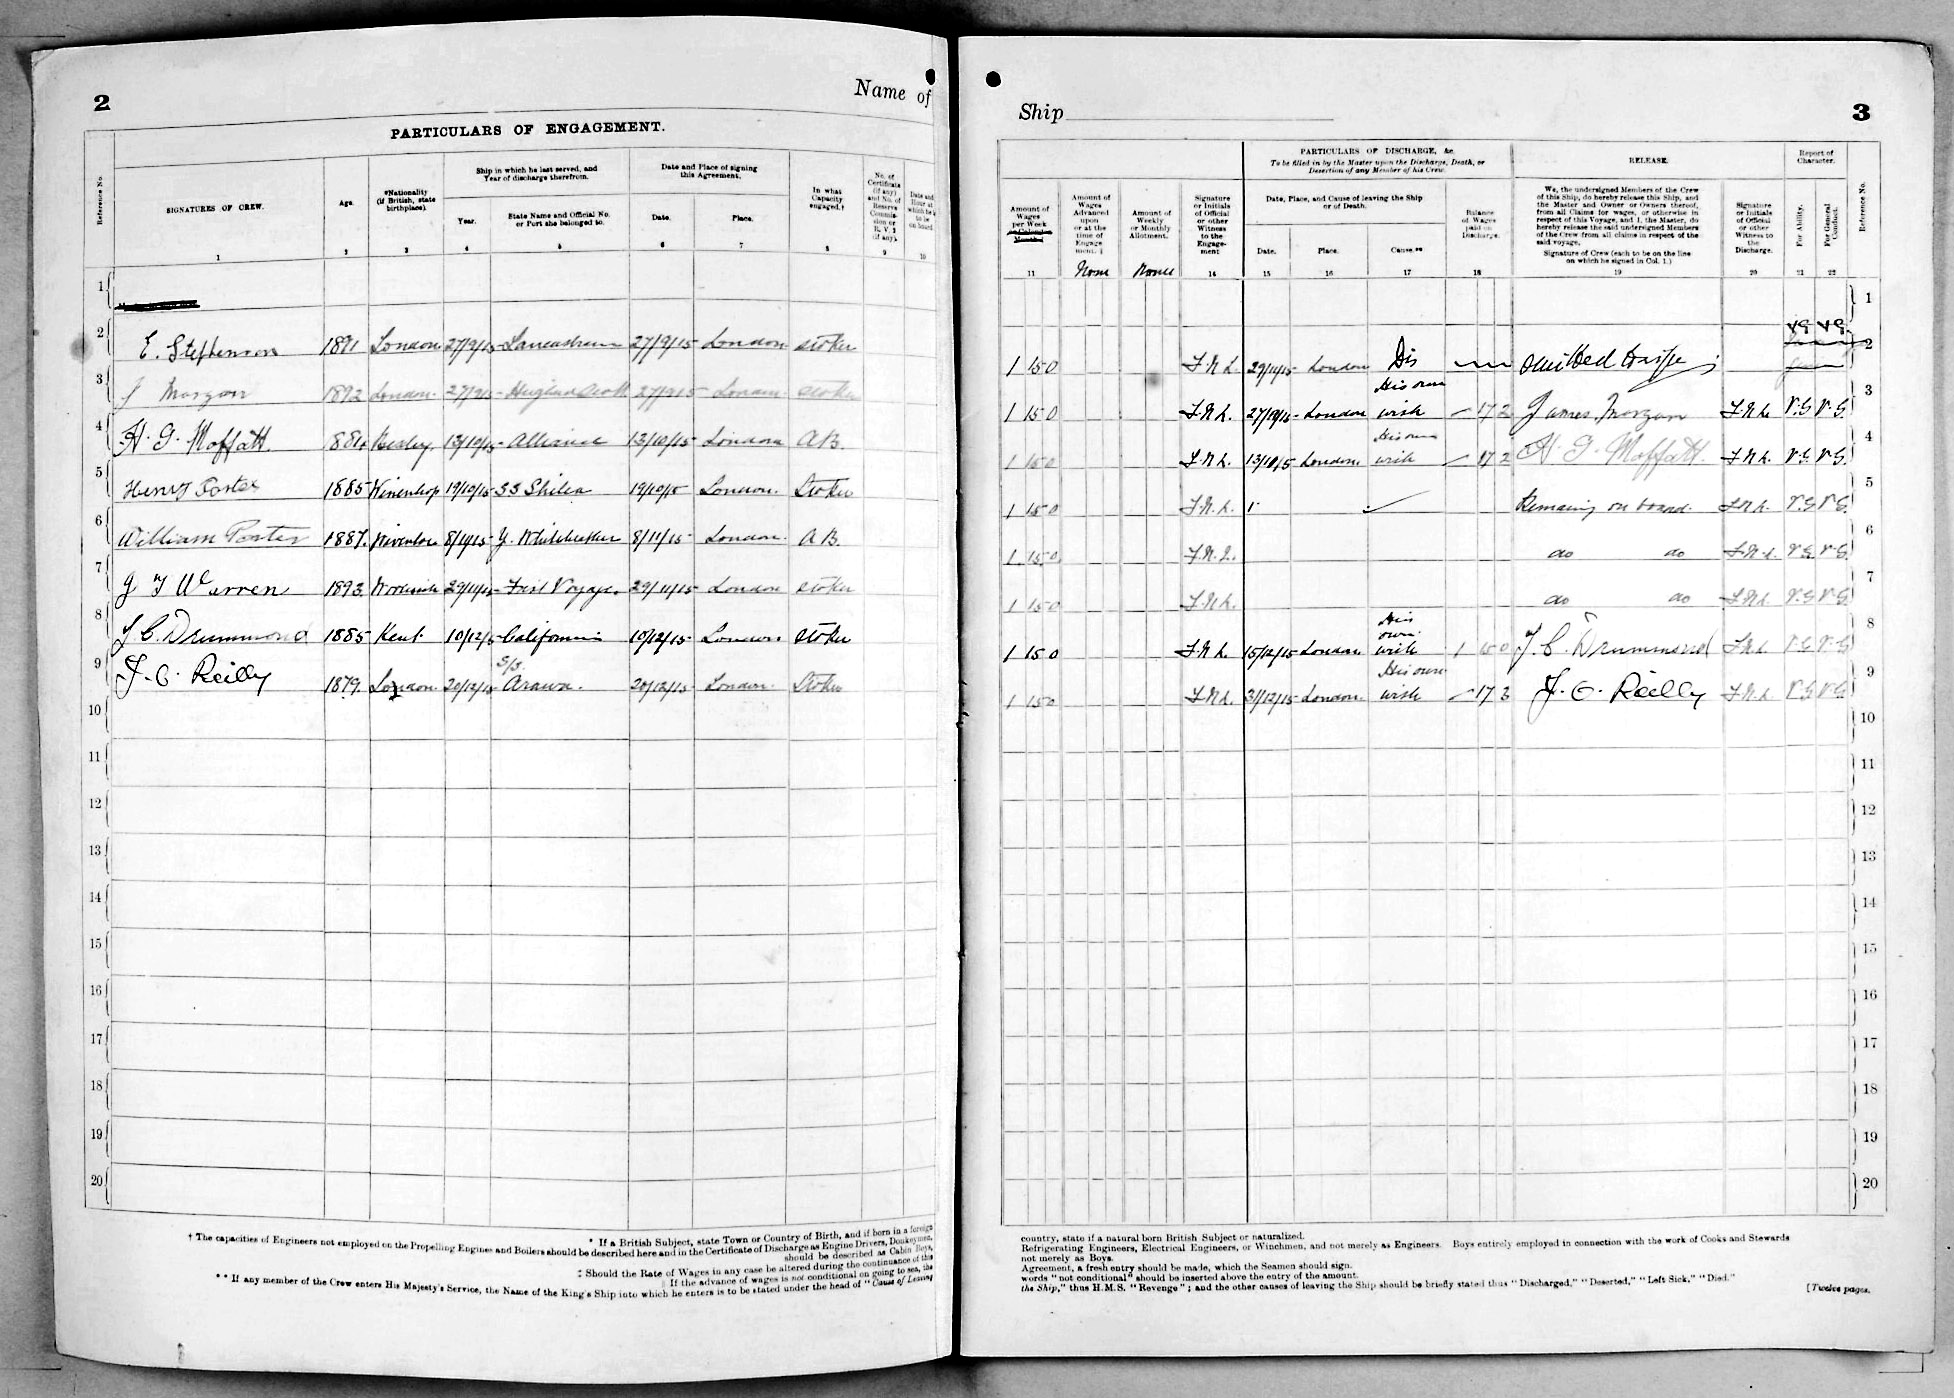 2
Name of
PARTICULARS OF ENGAGEMENT.
Reference No.
SIGNATURES OF CREW.
Age.
*Nationality (if British, state birthplace).
Ship in which he last served, and Year of discharge therefrom.
Year.
State Name and Official No. or Port she belonged to.
Date and Place of signing this Agreement.
Date.
Place.
In what Capacity engaged.†
No. of Certificate (if any) and No. of Reserve Commission or R.V. 2 (if any).
Date and Hour at which he is to be on board
1 2 3 4 5 6 7 8 9 10
1
2 E. Stephenson 1891 London 27/9/15 Lancastrian 27/9/15 London Stoker
3 J Morgan 1892 London 27/9/15 Highland Scott 27/9/15 London Stoker
4 H. G. Moffatt 1884 Bexley 13/10/15 Alliance 13/10/15 London A B.
5 Henry Porter 1885 19/10/15 SS 19/10/15 London. Stoker
6 William Porter 1887. 8/11/15 8/11/15 London. A B.
7 Warren 1893 Woolwich 29/11/15 First Voyage 29/11/15 London Stoker
8 J. C. Drummond 1885 Kent 10/12/15 California 10/12/15 London Stoker
9 J. C. Reilly 1879. London 20/12/15 S/S. Arawa. 20/12/15 London. Stoker
10
11
12
13
14
15
16
17
18
19
20
* If a British Subject, state Town or Country of Birth, and if born in a foreign
† The capacities of Engineers not employed on the Propelling Engines and Boilers should be described here and in the Certificate of Discharge as Engine Drivers, Donkeymen,
should be described as Cabin Boys,
‡ Should the Rate of Wages in any case be altered during the continuance of this
|| If the advance of wages is not conditional on going to sea, the
** If any member of the Crew enters His Majesty's Service, the Name of the King's Ship into which he enters is to be stated under the head of "Cause of Leaving
Ship
3
Amount of Wages per Week or Calendar Month
Amount of Wages Advanced upon or at the time of Engagement.
None
Amount of Weekly or Monthly Allotment.
None
Signature or Initials of Official or other Witness to the Engagement
PARTICULARS OF DISCHARGE, &c.
To be filled in by the Master upon the Discharge, Death, or Desertion of any Member of his Crew.
Date, Place, and Cause of leaving the Ship or of Death.
Date.
Place.
Cause.**
Balance of Wages paid on Discharge.
RELEASE.
We, the undersigned Members of the Crew of this Ship, do hereby release this Ship, and the Master and Owner or Owners thereof, from all Claims for wages, or otherwise in respect of this Voyage, and I, the Master, do hereby release the said undersigned Members of the Crew from all claims in respect of the said voyage.
Signature of Crew (each to be on the line on which he signed in Col. 1.)
Signature or Initials of Official or other Witness to the Discharge.
Report of Character.
For Ability.
For General Conduct.
Reference No.
11 14 15 16 17 18 19 20 21 22
1
VG VG
1 15 0 29/11/15 London Dis 2
1 15 0 27/9/15 London His own wish 17 2 James Morgan V.G V.G. 3
1 15 0 13/10/15 London His own wish 17 2 H. G. Moffatt V.G. V.G. 4
1 15 0 Remaining on board. V.G V.G. 5
1 15 0 do do V.G. V.G. 6
1 15 0 do do V.G V.G. 7
1 15 0 15/12/15 London His own wish 1 10 0 J. C. Drummond V.G V.G 8
1 15 0 31/12/15 London His own wish 17 3 J. C. Reilly V.G V.G 9
10
11
12
13
14
15
16
17
18
19
20
country, state if a natural born British Subject or naturalized.
Refrigerating Engineers, Electrical Engineers, or Winchmen, and not merely as Engineers. Boys entirely employed in connection with the work of Cooks and Stewards
not merely as Boys.
Agreement, a fresh entry should be made, which the Seamen should sign.
words "not conditional" should be inserted above the entry of the amount.
the Ship," thus H.M.S. "Revenge"; and the other causes of leaving the Ship should be briefly stated thus "Discharged," "Deserted," "Left Sick," "Died."
[Twelve pages.